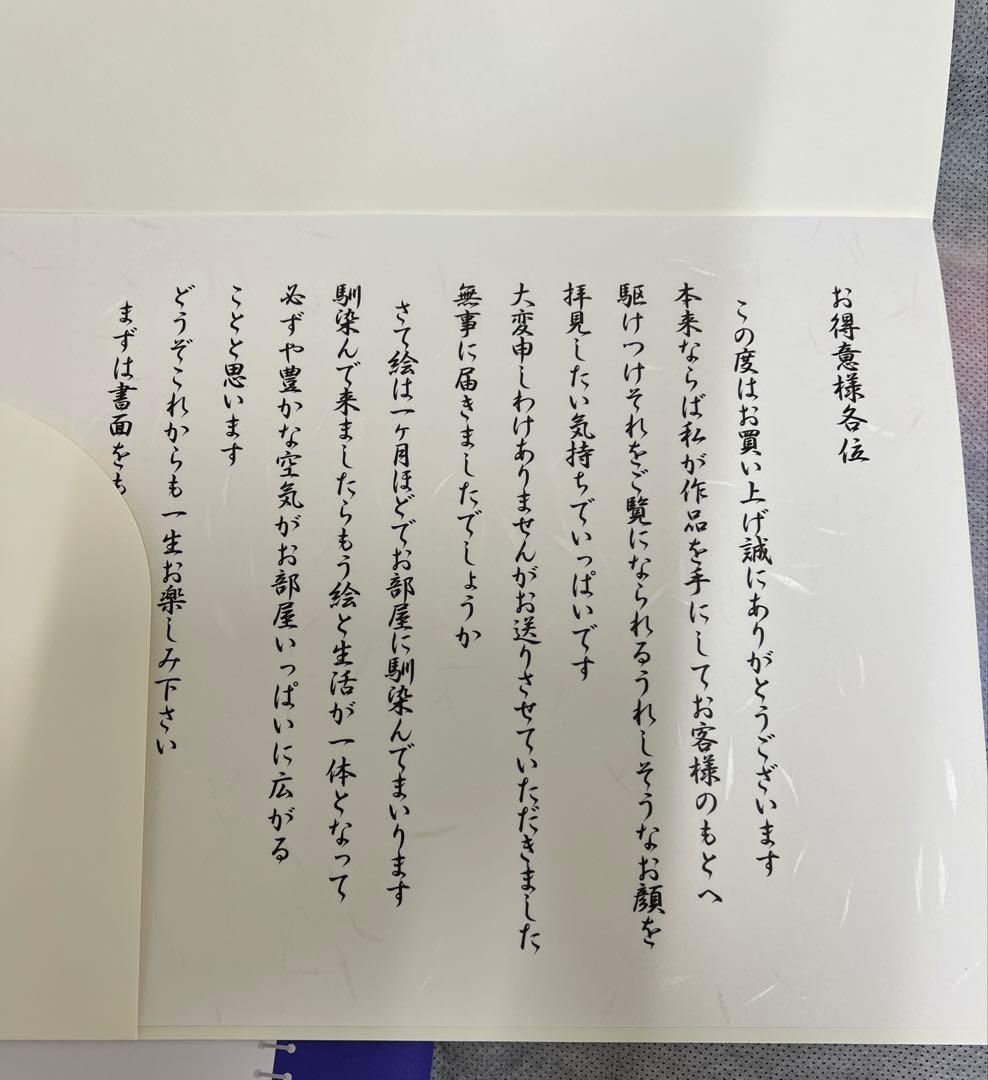 お得意様各位
この度はお買い上げ誠にありがとうございます
本来ならば私が作品を手にしてお客様のもとへ
駆けつけそれをご覧になられるうれしそうなお顔を
拝見したい気持ちでいっぱいです
大変申しわけありませんがお送りさせていただきました
無事に届きましたでしょうか
さて絵は一ヶ月ほどでお部屋に馴染んでまいります
馴染んで来ましたらもう絵と生活が一体となって
必ずや豊かな空気がお部屋いっぱいに広がる
ことと思います
どうぞこれからも一生お楽しみ下さい
まずは書面をも